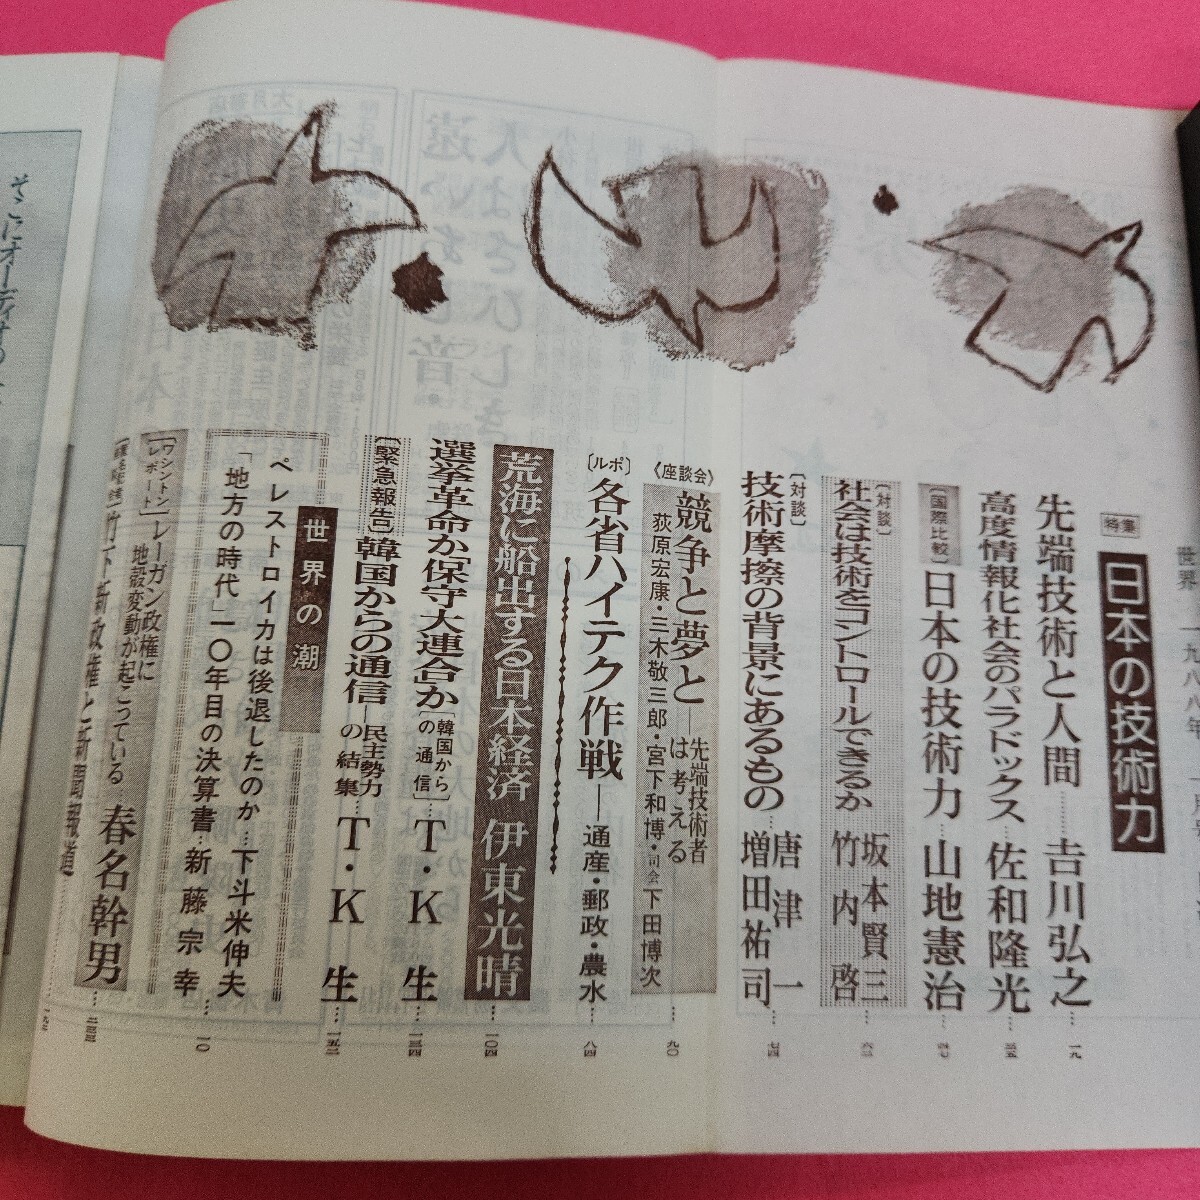 世界 一九八八年
特集
日本の技術力
先端技術と人間……吉川弘之…一九
高度情報化社会のパラドックス…佐和隆光…三五
〔国際比較〕日本の技術力…山地憲治…四七
〔対談〕
社会は技術をコントロールできるか 坂本賢三 竹内啓…六三
〔対談〕
技術摩擦の背景にあるもの 唐津一 増田祐司…七四
《座談会》
競争と夢と―先端技術者は考える
荻原宏康・三木敬三郎・宮下和博・司会 下田博次…九〇
〔ルポ〕各省ハイテク作戦―通産・郵政・農水…八四
荒海に船出する日本経済 伊東光晴…一〇四
選挙革命か「保守大連合」か〔韓国からの通信〕…T・K生…一三四
〔緊急報告〕韓国からの通信―民主勢力の結集…T・K生…一五二
世界の潮
ペレストロイカは後退したのか…下斗米伸夫
「地方の時代」一〇年目の決算書…新藤宗幸…一〇
〔ワシントンレポート〕レーガン政権に地殻変動が起こっている 春名幹男…二三三
竹下新政権と新聞報道
そこにオーディオの